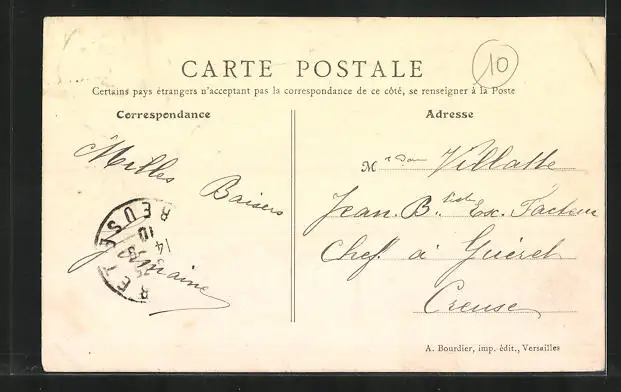 10
CARTE POSTALE
Certains pays étrangers n'acceptant pas la correspondance de ce côté, se renseigner à la Poste
Correspondance
Milles Baisers
Germaine
RET
CREUSE
10
14
Adresse
M Villatte
Jean. B.tiste Ex. Facteur
Chef à Guéret
Creuse
A. Bourdier, imp. édit., Versailles